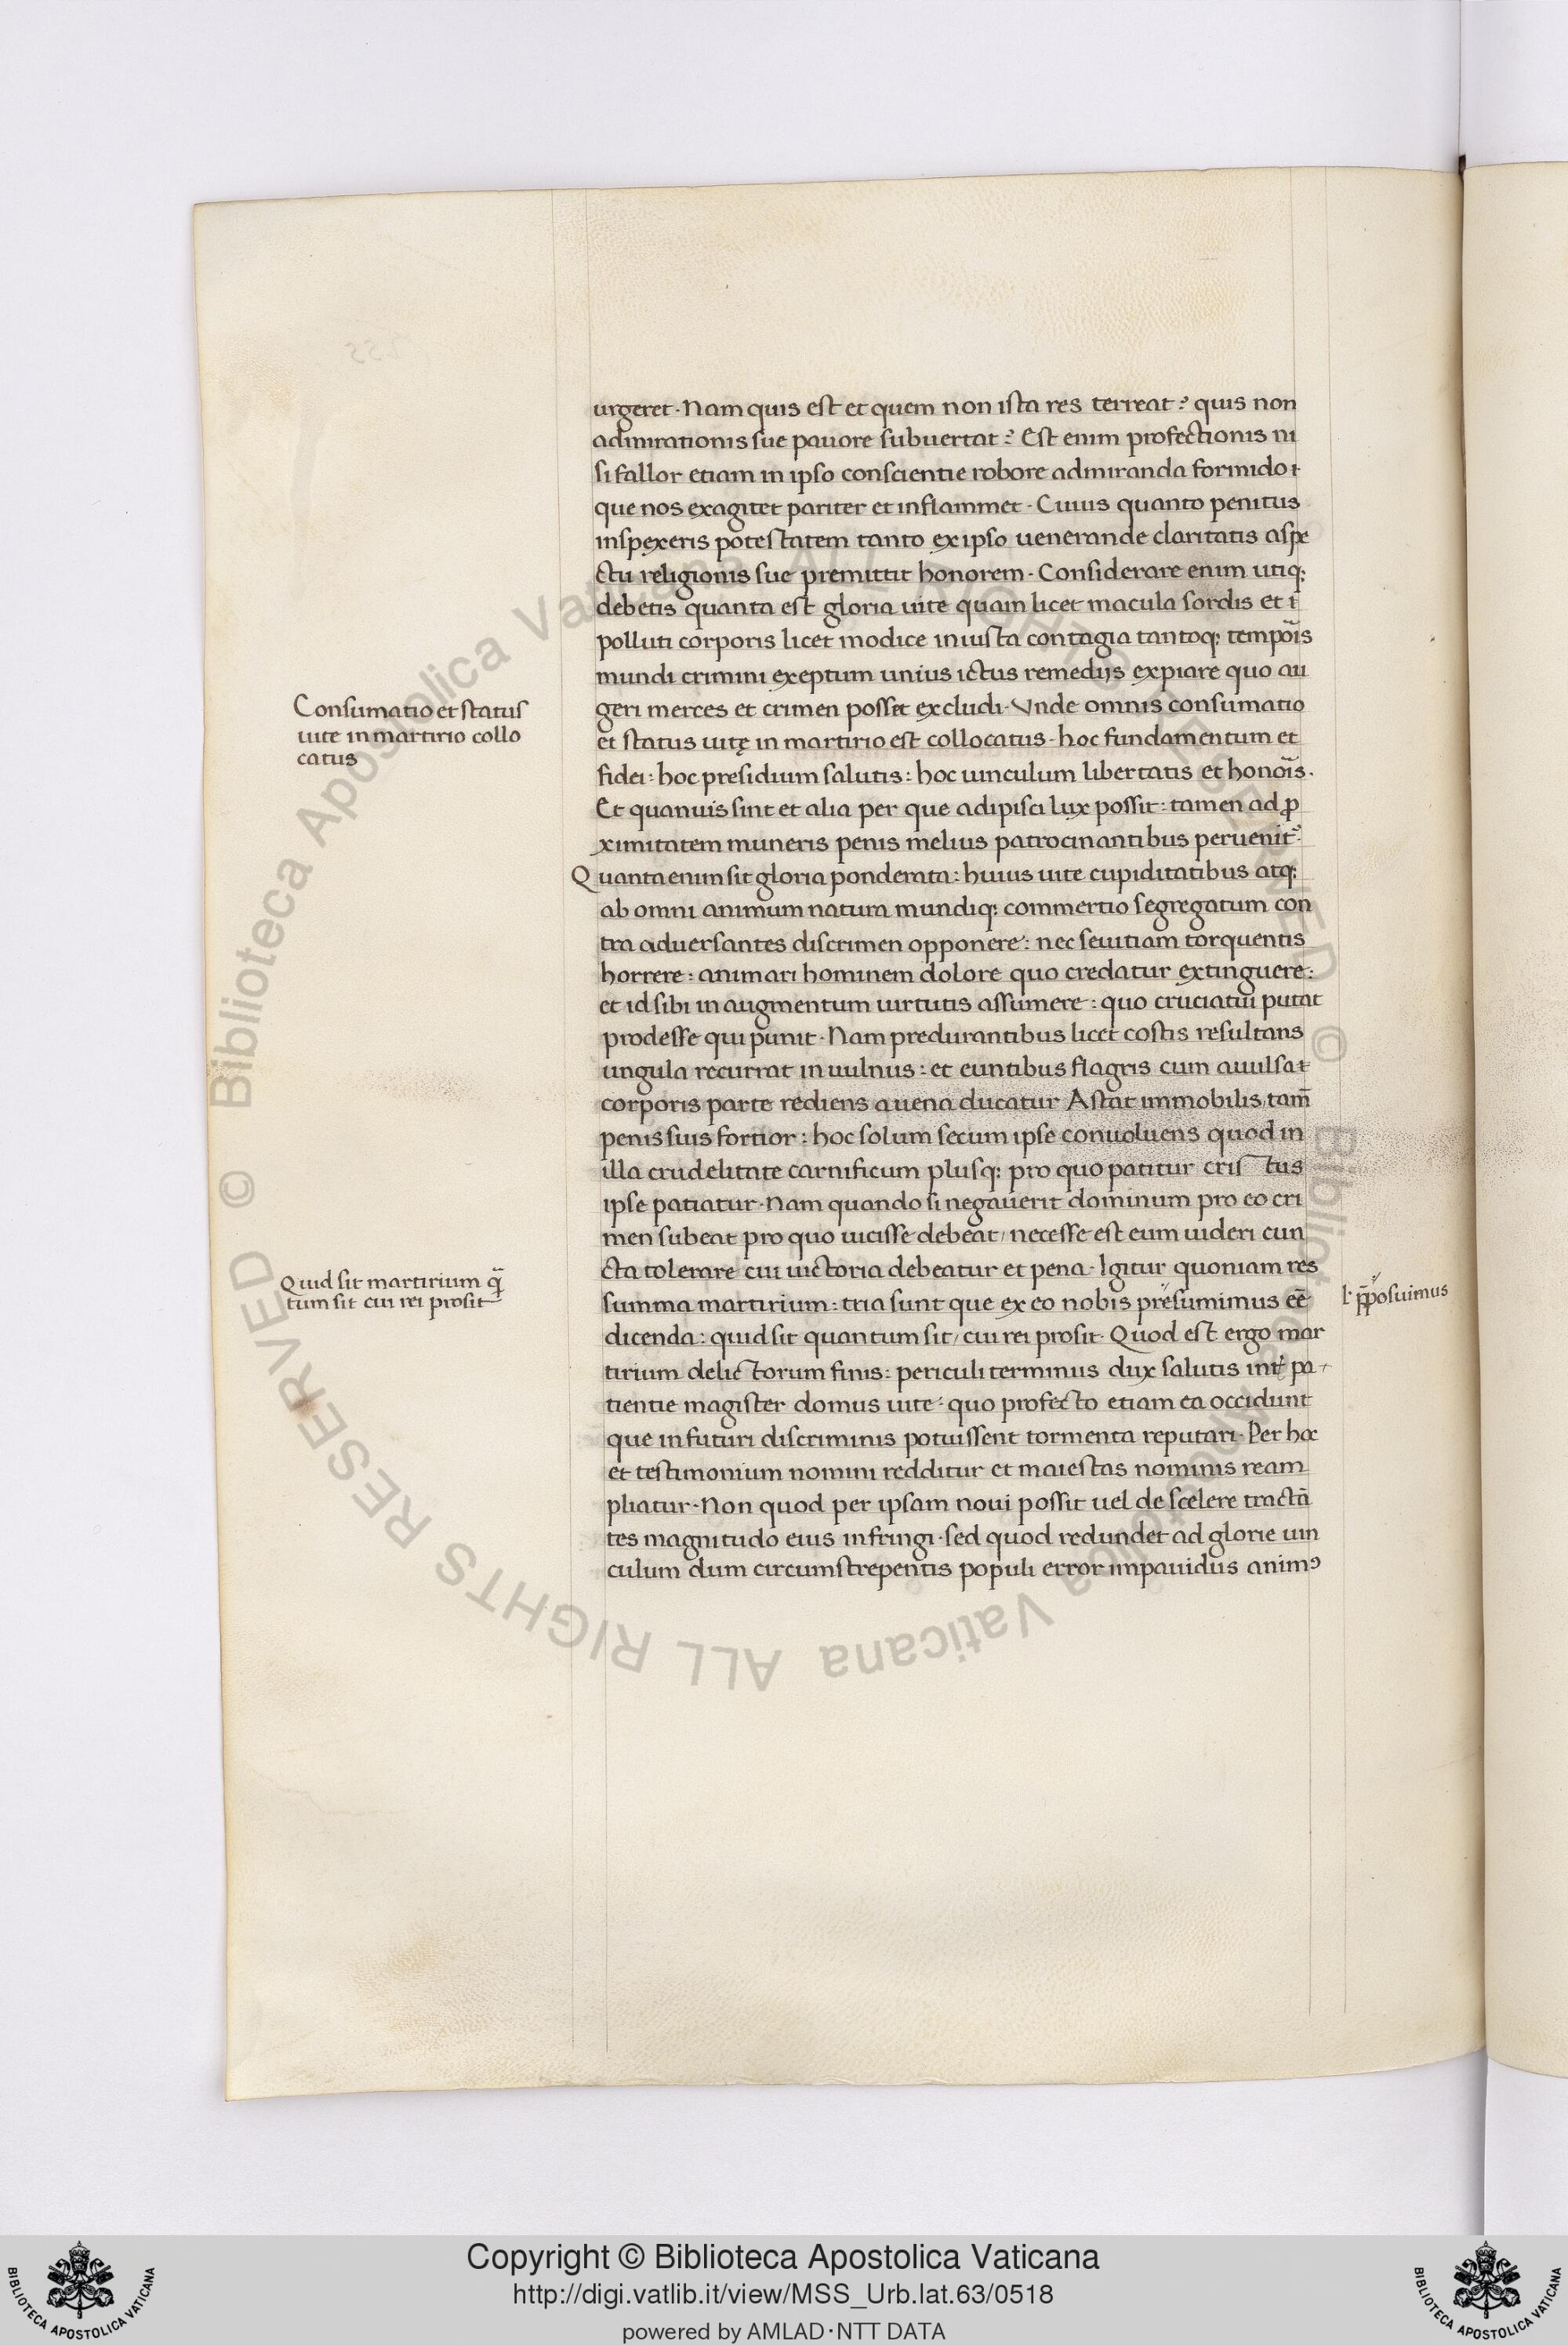 urgeret · Nam quis est et quem non ista res terreat? quis non
admirationis sue pauore subuertat? Est enim profectionis ni
si fallor etiam in ipso conscientie robore admiranda formido
que nos exagitet pariter et inflammet · Cuius quanto penitus
inspexeris potestatem tanto ex ipso uenerande claritatis aspe
ctu religionis sue premittit honorem · Considerare enim utiq;
debetis quanta est gloria uite quam licet macula sordis et ī
polluti corporis licet modice iniusta contagia tantoq; tempoīs
mundi crimini exeptum unius ictus remedijs expiare quo au
geri merces et crimen posset excludi · Vnde omnis consumatio
et status uitę in martirio est collocatus · hoc fundamentum et
fidei : hoc presidium salutis : hoc uinculum libertatis et honoīs ·
Et quanuis sint et alia per que adipisci lux possit : tamen ad ꝓ
ximitatem muneris penis melius patrocinantibus peruenit᷒ ·
Quanta enim sit gloria ponderata : huius uite cupiditatibus atq;
ab omni animum natura mundiq; commertio segregatum con
tra aduersantes discrimen opponere : nec seuitiam torquentis
horrere : animari hominem dolore quo credatur extinguere :
et id sibi in augmentum uirtutis assumere : quo cruciatiū putat
prodesse qui punit · Nam predurantibus licet costis resultans
ungula recurrat in uulnus : et euntibus flagris cum auulsa
corporis parte rediens auena ducatur Astat immobilis tam̄
penis suis fortior : hoc solum secum ipse conuoluens quod in
illa crudelitate carnificum plusq; pro quo patitur cristus
ipse patiatur · Nam quando si negauerit dominum pro eo cri
men subeat pro quo uicisse debeat / necesse est eum uideri cun
cta tolerare cui uictoria debeatur et pena · Igitur quoniam res
summa martirium : tria sunt que ex eo nobis presumimus eē
dicenda : quid sit quantum sit / cui rei prosit · Quod est ergo mar
tirium delictorum finis : periculi terminus dux salutis int᷒ pa
tientie magister domus uite : quo profecto etiam ea occidunt
que in futuri discriminis potuissent tormenta reputari · Per hoc
et testimonium nomini redditur et maiestas nominis ream
pliatur · Non quod per ipsam noui possit uel de scelere tractā
tes magnitudo eius infringi · sed quod redundet ad glorie uin
culum dum circumstrepentis populi error impauidus animꝰ
Consumatio et status
uite in martirio collo
catus
Quid sit martirium q̄
tum sit cui rei prosit
l· pp̄osuimus
© Biblioteca Apostolica Vaticana ALL RIGHTS RESERVED © Biblioteca Apostolica Vaticana ALL RIGHTS RESERVED
Copyright © Biblioteca Apostolica Vaticana
http://digi.vatlib.it/view/MSS_Urb.lat.63/0518
powered by AMLAD·NTT DATA
BIBLIOTECA APOSTOLICA VATICANA
BIBLIOTECA APOSTOLICA VATICANA